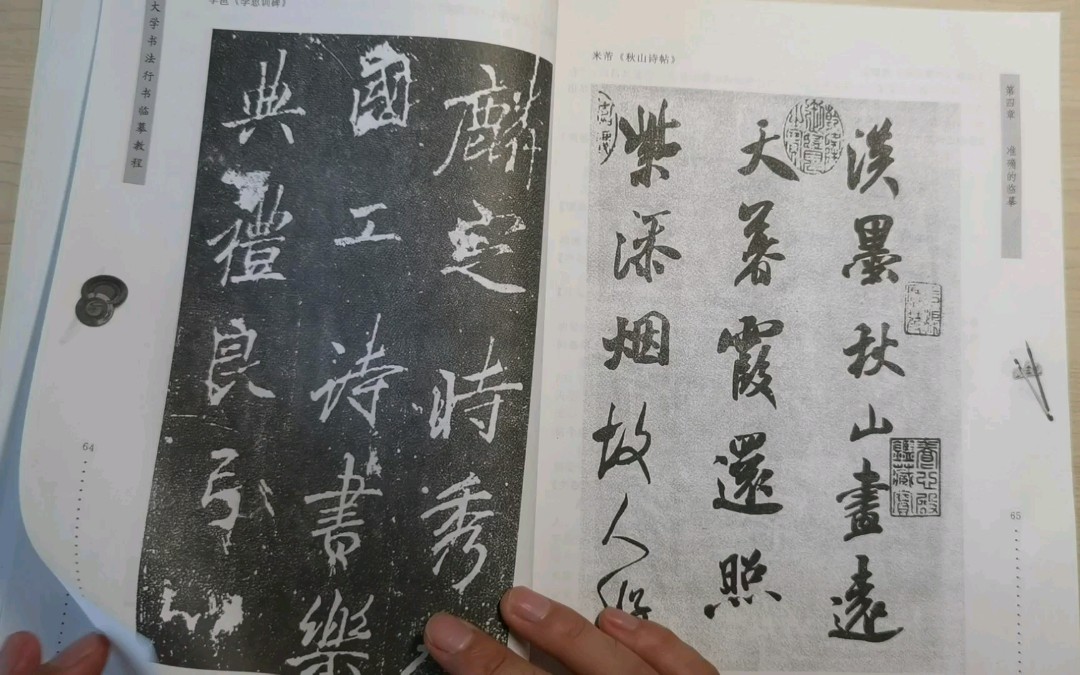 大学书法行书临摹教程
李邕《李思训碑》
麟定時秀
國工詩書樂
典禮良弓
64
米芾《秋山诗帖》
第四章 准确的临摹
淡墨秋山畫遠
天暮霞還照
紫添烟故人
65